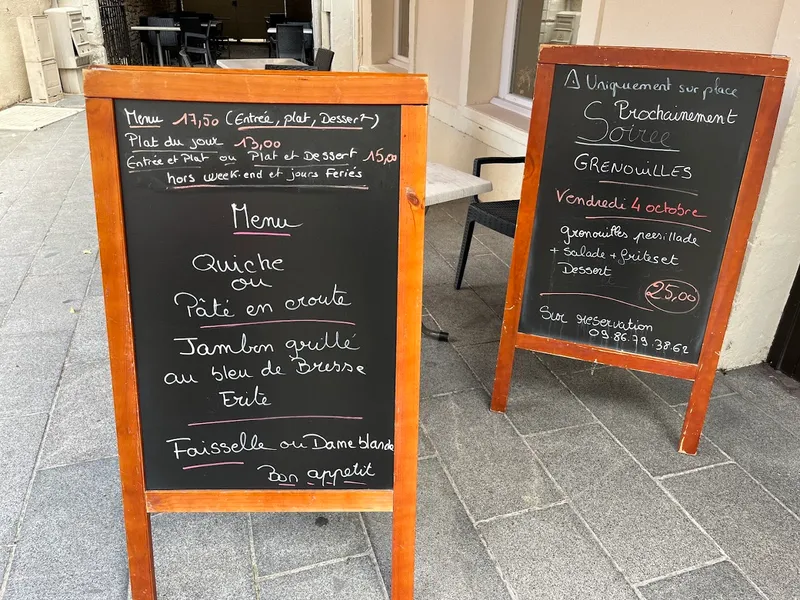 Menu 17,50 (Entrée, plat, Dessert)
Plat du jour 13,00
Entrée et Plat ou Plat et Dessert 15,00
hors week-end et jours Feriés
Menu
Quiche
ou
Pâté en croute
Jambon grillé
au bleu de Bresse
Frite
Faisselle ou Dame blande
Bon appetit
⚠ Uniquement sur place
Prochainement
Soirée
GRENOUILLES
Vendredi 4 octobre
grenouilles persillade
+ Salade + frites et
Dessert
25,00
Sur reservation
09.86.79.38.62